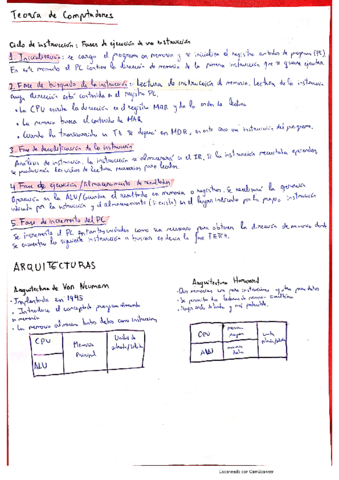 Teoría de Computadores
Ciclo de instrucción: Fases de ejecución de una instrucción
1. Inicialización: se carga el programa en memoria y se inicializa el registro contador de programa (PC)
En este momento el PC contiene la dirección de memoria de la primera instrucción que se quiere ejecutar
2. Fase de búsqueda de la instrucción: Lectura de instrucción de memoria. Lectura de la instrucción
cuya dirección está contenida en el registro PC.
• La CPU escribe la dirección en el registro MAR y da la orden de lectura
• La memoria busca el contenido de MAR
• Cuando ha transcurrido un se deposi en MDR, en este caso una instrucción del programa.
3. Fase de decodificación de la instrucción
Análisis de instrucción, la instrucción se almacena en el IR, Si la instrucción necesitaba operandos
se producirán los ciclos de lectura necesarios para leerlos.
4. Fase de ejecución / Almacenamiento de resultados
Operación en la ALU / Guardar el resultado en memoria o registros. Se realizará la operación
por la instrucción y el almacenamiento (si existe) en el lugar indicado por la propia instrucción
5. Fase de incremento del PC
Se incrementa el PC en tantas unidades como sea necesario para obtener la dirección de memoria donde
se encuentra la siguiente instrucción a buscar en la fase FETCH.
ARQUITECTURAS
Arquitectura de Von Neumann
• Implantada en 1945
• Introduce el concepto de programa almacenado
en memoria
• La memoria almacena tanto datos como instrucciones
CPU
ALU
Memoria
Principal
Unidades de
entrada/salida
Arquitectura Harvard
• Dos memorias una para instrucciones y otra para datos
• Se permite la lectura de memoria simultánea
CPU
ALU
memoria
programa
memoria
datos
unidad
entrada/salida
Escaneado con CamScanner